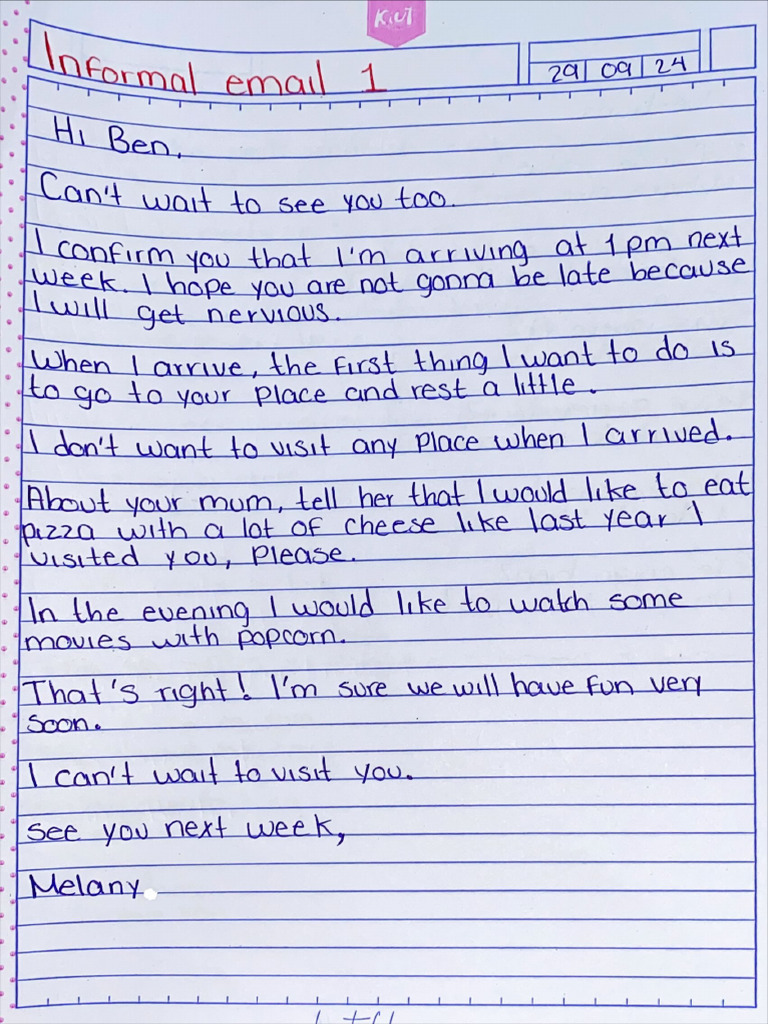 K.UT
Informal email 1
29 09 24
Hi Ben,
Can't wait to see you too.
I confirm you that I'm arriving at 1pm next
week. I hope you are not gonna be late because
I will get nervious.
When I arrive, the first thing I want to do is
to go to your place and rest a little.
I don't want to visit any place when I arrived.
About your mum, tell her that I would like to eat
pizza with a lot of cheese like last year I
visited you, please.
In the evening I would like to watch some
movies with popcorn.
That's right! I'm sure we will have fun very
soon.
I can't wait to visit you.
see you next week,
Melany.